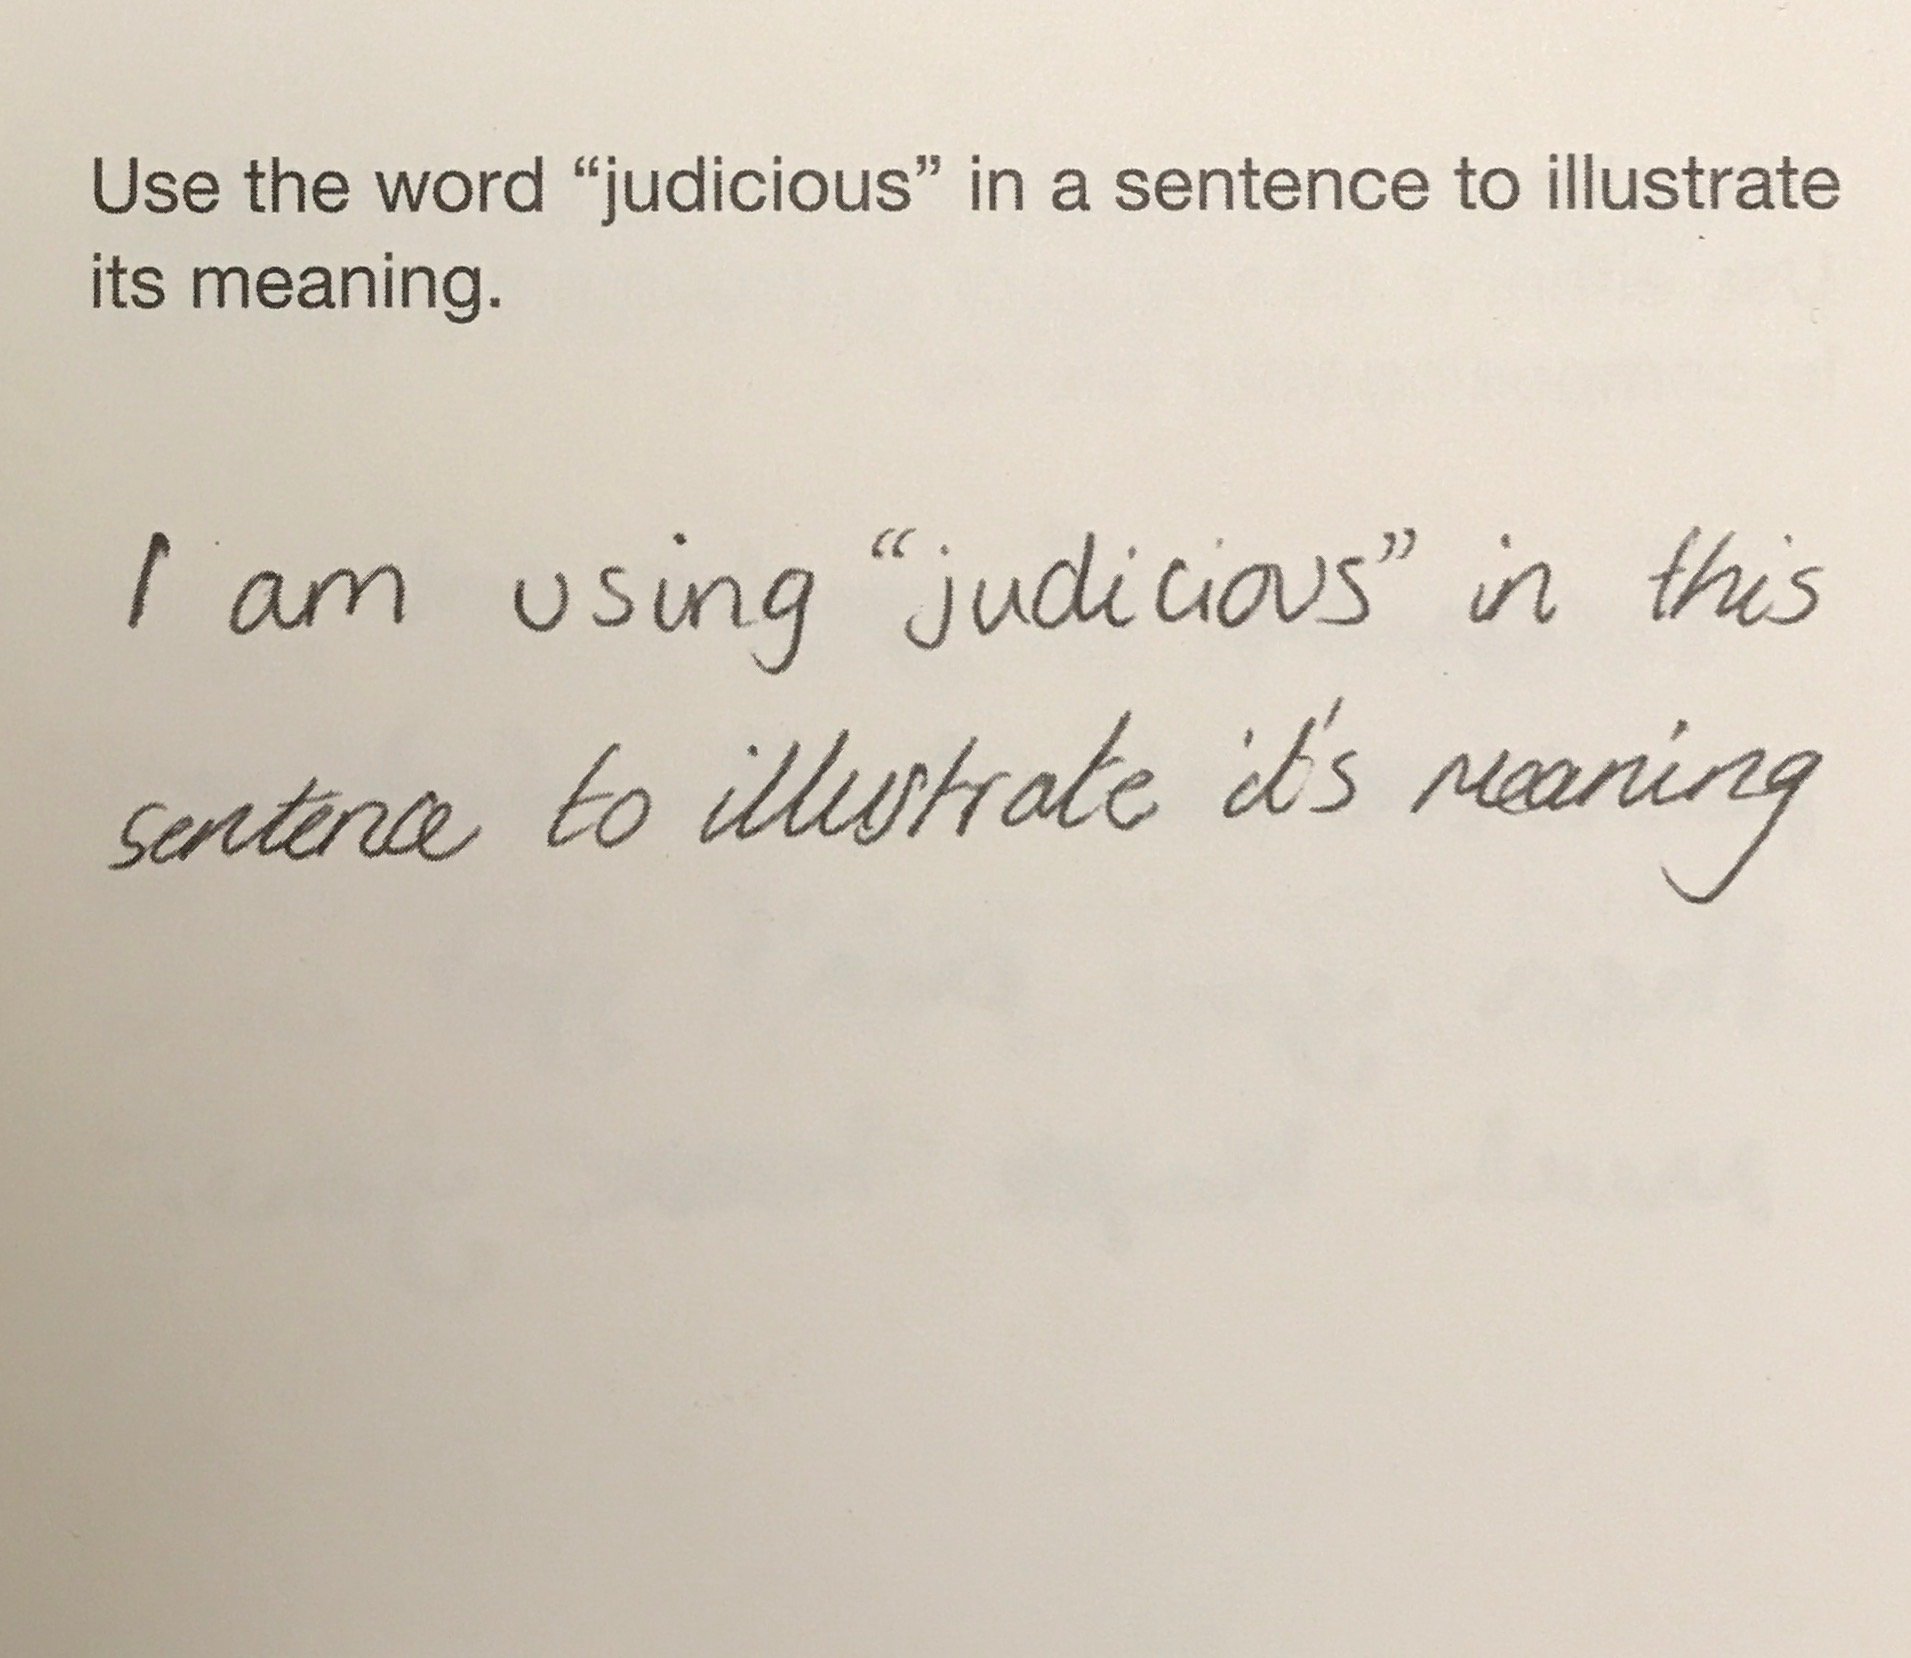 Use the word “judicious” in a sentence to illustrate
its meaning.
I am using “judicious” in this
sentence to illustrate it's meaning